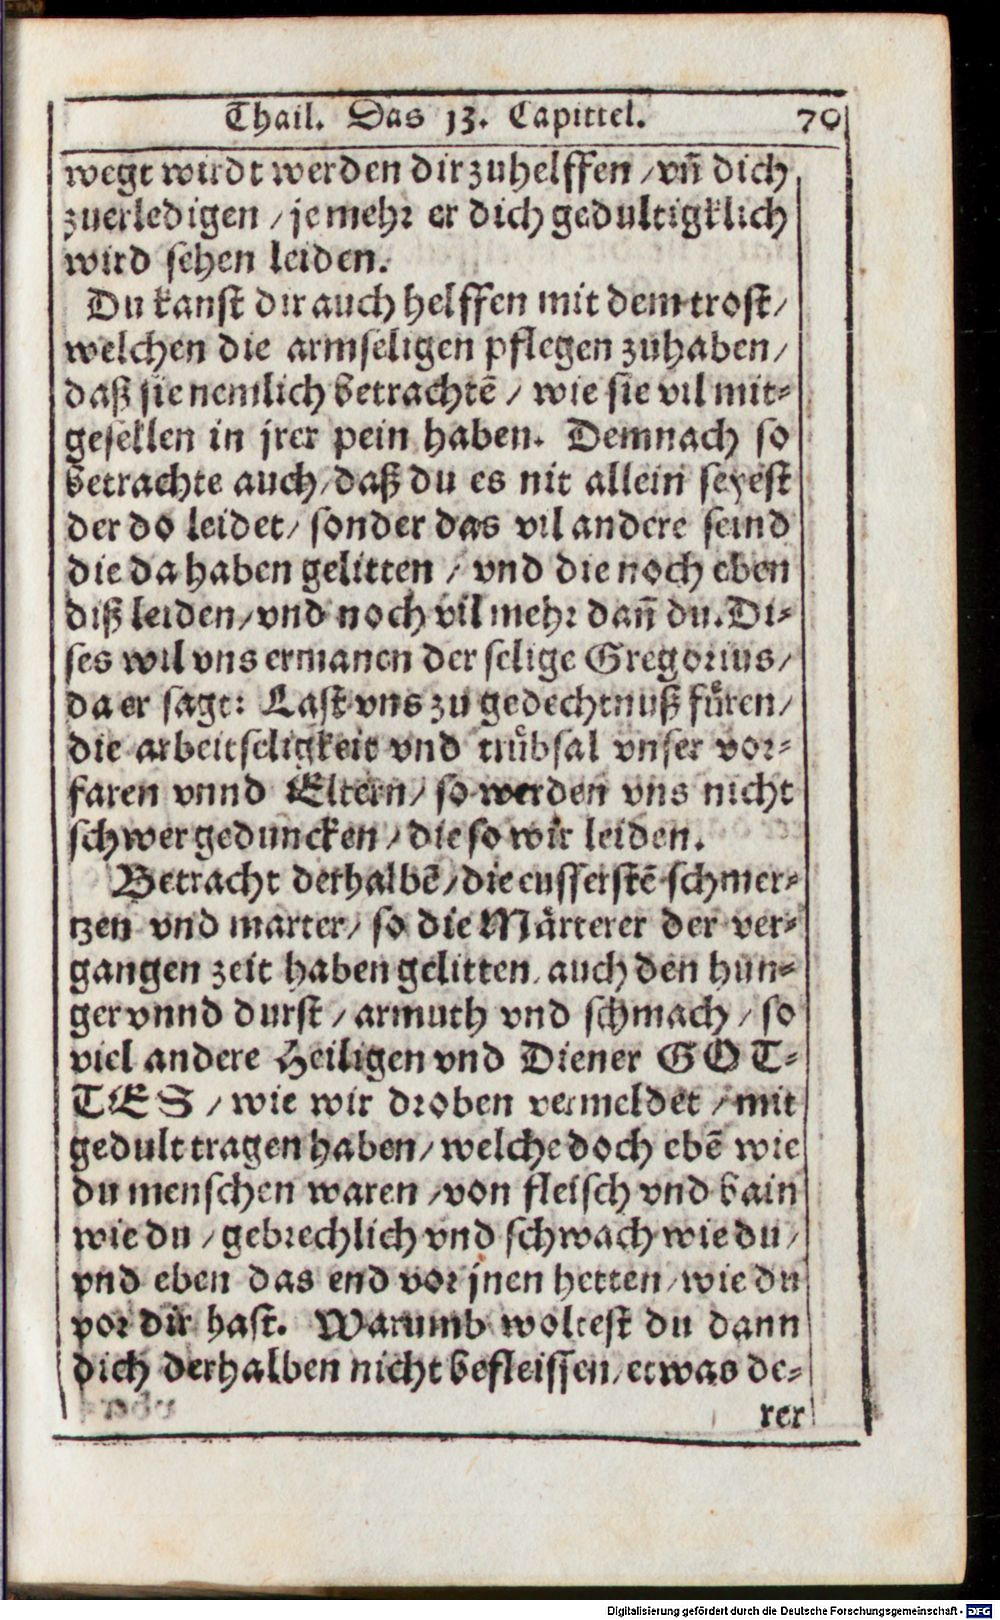 Thail. Das 13. Capittel. 70
wegt wirdt werden dir zuhelffen / vn̄ dich
zuerledigen / je mehr er dich gedultigklich
wird sehen leiden.
Du kanst dir auch helffen mit dem trost /
welchen die armseligen pflegen zuhaben /
daß sie nemlich betrachtē / wie sie vil mit-
gesellen in jrer pein haben. Demnach so
betrachte auch / daß du es nit allein seyest
der do leidet / sonder das vil andere seind
die da haben gelitten / vnd die noch eben
diß leiden / vnd noch vil mehr dan̄ du. Di-
ses wil vns ermanen der selige Gregorius /
da er sagt: Last vns zu gedechtnuß fuͤren /
die arbeitseligkeit vnd truͤbsal vnser vor-
faren vnnd Eltern / so werden vns nicht
schwer geduncken / die so wir leiden.
Betracht derhalbē / die eusserstē schmer-
tzen vnd marter / so die Maͤrterer der ver-
gangen zeit haben gelitten / auch den hun-
ger vnnd durst / armuth vnd schmach / so
viel andere Heiligen vnd Diener GOT-
TES / wie wir droben vermeldet / mit
gedult tragen haben / welche doch ebē wie
du menschen waren / von fleisch vnd bain
wie du / gebrechlich vnd schwach wie du /
vnd eben das end vor jnen hetten / wie du
vor dir hast. Warumb woltest du dann
dich derhalben nicht befleissen / etwas de-
rer
Digitalisierung gefördert durch die Deutsche Forschungsgemeinschaft - DFG